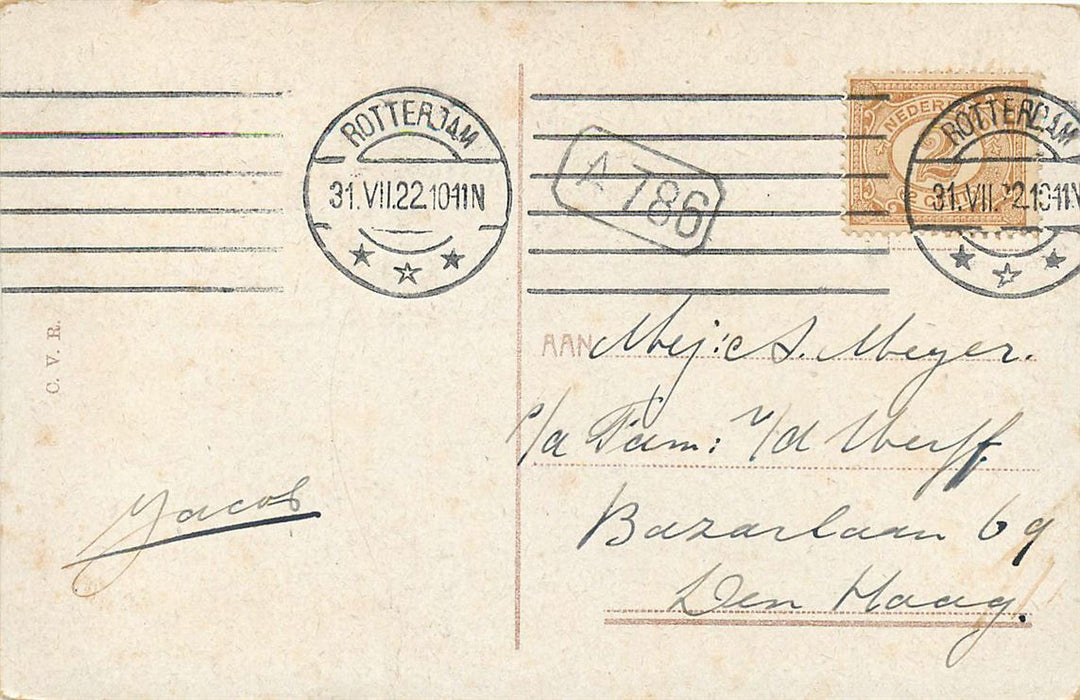 ROTTERDAM
31.VII.22.10-11N
A 786
NEDERL
2½
CENT
ROTTERDAM
31.VII.22.10-11N
C. V. R.
AAN Mej: A. Meyer.
p/a Fam: v/d Werff.
Bazarlaan 69
Den Haag.
Jacob